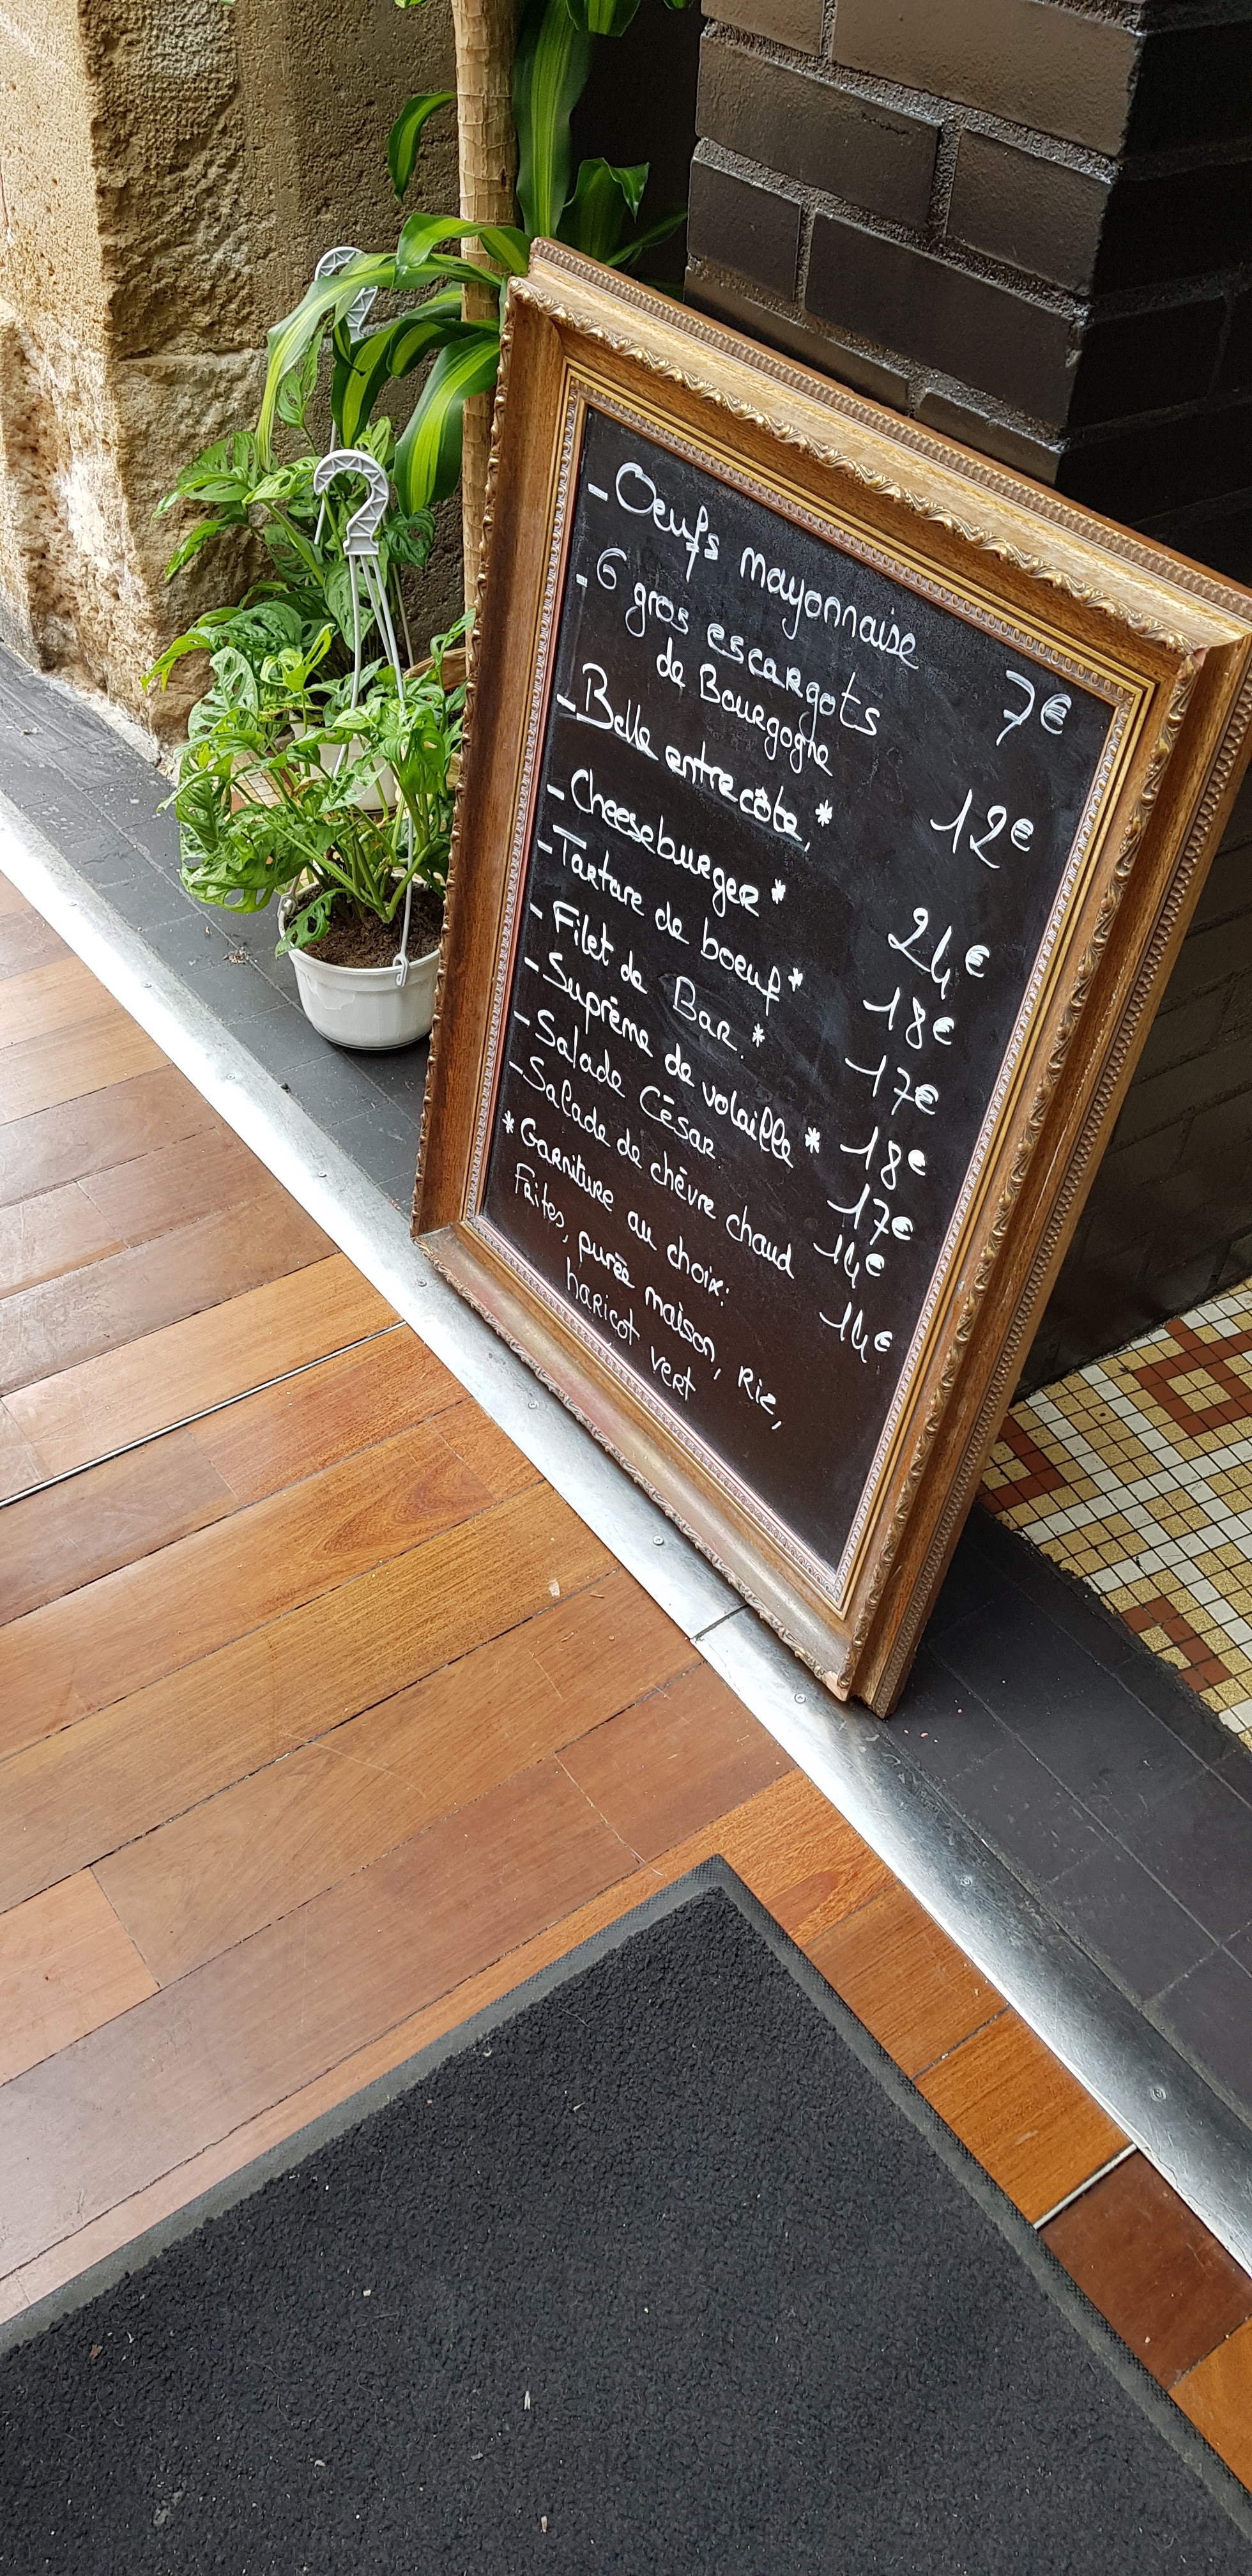 - Oeufs mayonnaise 7€
- 6 gros escargots
de Bourgogne 12€
- Belle entrecôte * 24€
- Cheeseburger * 18€
- Tartare de boeuf * 17€
- Filet de Bar * 18€
- Suprême de volaille * 17€
- Salade César 14€
- Salade de chèvre chaud 14€
* Garniture au choix:
Frites, purée maison, Riz,
haricot vert